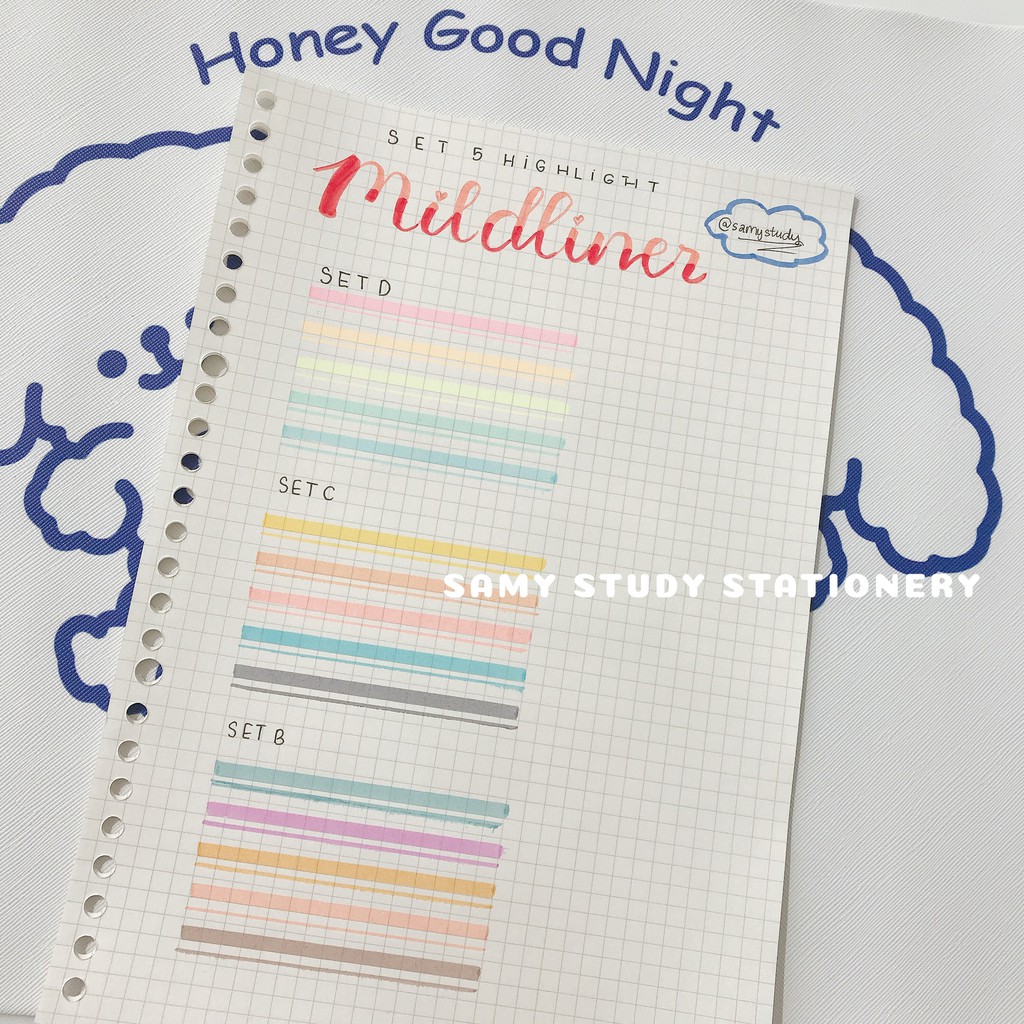 Honey Good Night
SET 5 HiGHLiGHT
Mildliner
@samystudy
SET D
SET C
SAMY STUDY STATIONERY
SET B